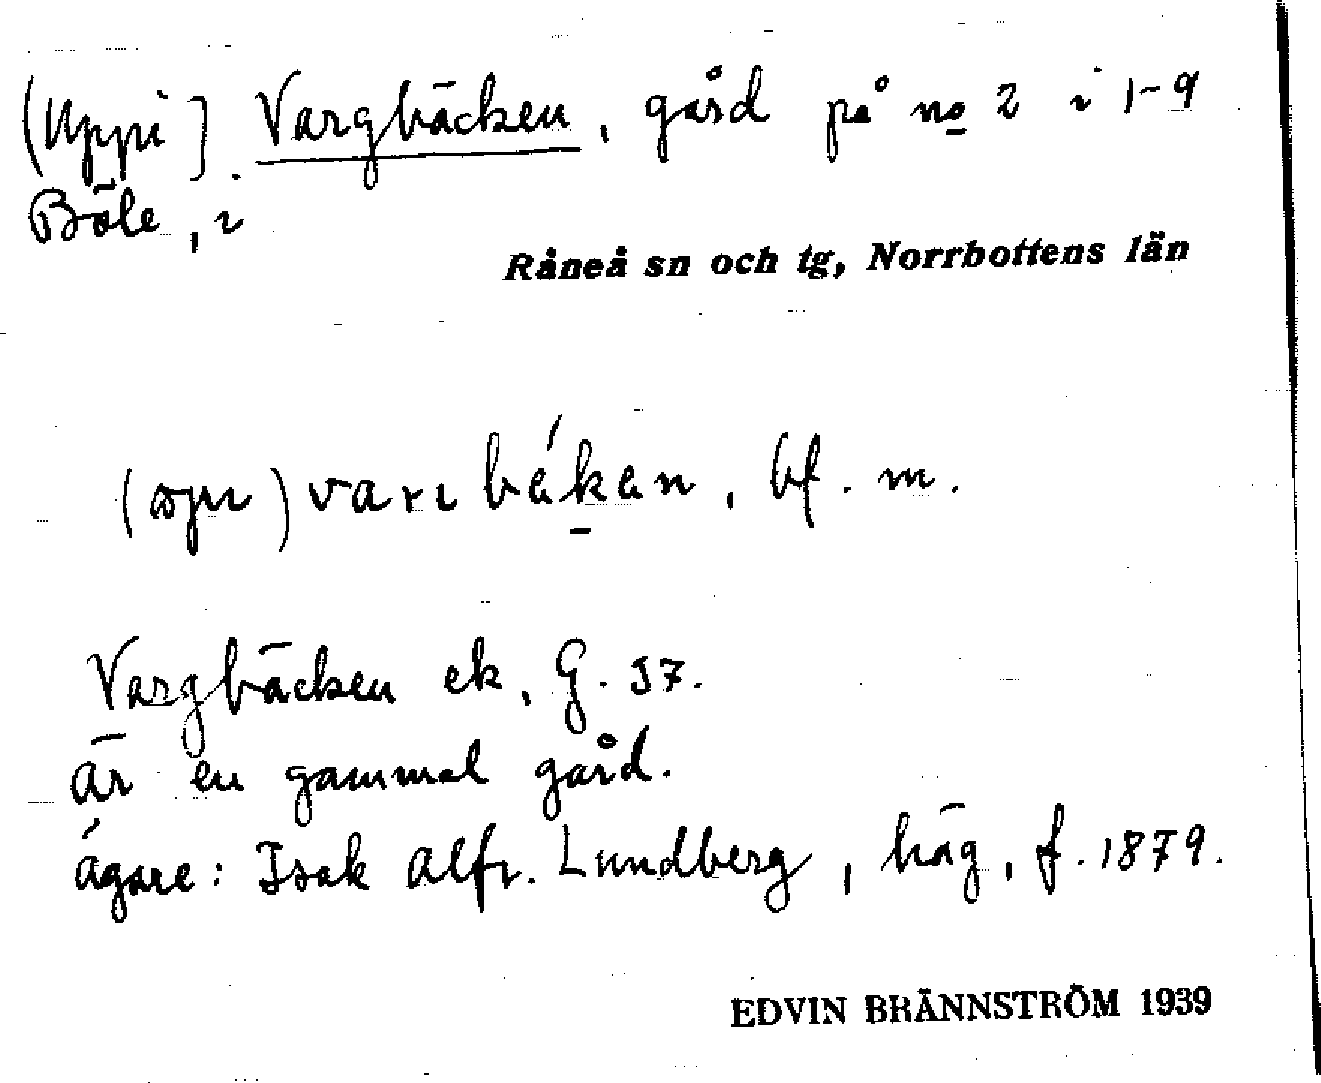 (Uppi] Vargbäcken, gård på no 2 i 1-9
Böle, i
Råneå sn och tg, Norrbottens län
(upi) varıbákan, bf. m.
Vargbäcken ek, G. 37.
är en gammal gård.
ägare: Isak Alfr. Lundberg, häg, f. 1879.
EDVIN BRÄNNSTRÖM 1939